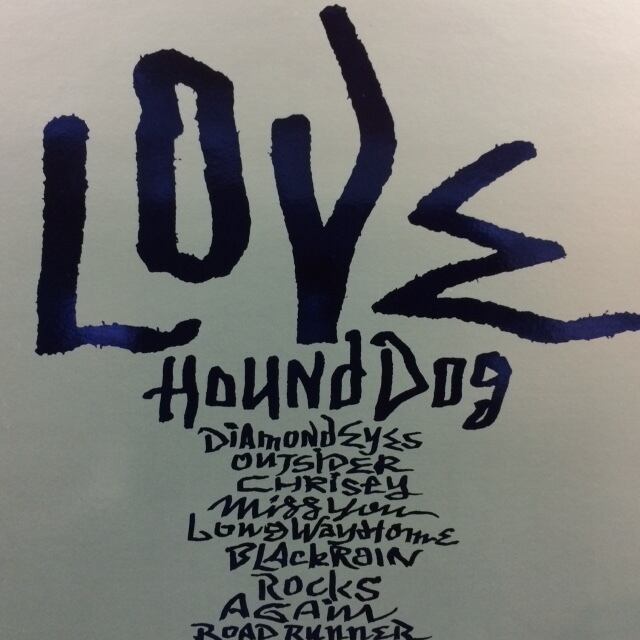 LOVE
HOUND DOG
DIAMOND EYES
OUTSIDER
CHRISEY
Miss you
LONG WAYS HOME
BLACK RAIN
ROCKS
AGAIN
ROAD RUNNER